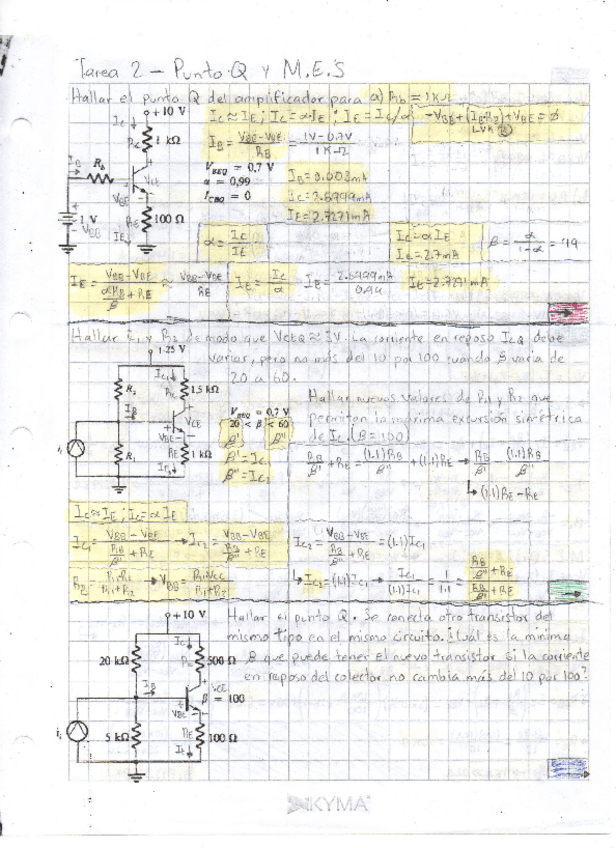 Tarea 2 - Punto Q y M.E.S
Hallar el punto Q del amplificador para a) Rb = 1KΩ
+10 V
1 kΩ
Rb
1 V
100 Ω
Ic ≈ IE ; Ic = αIE ; IE = Ic/α
-VBB + (IB·RB) + VBE = 0
IB = (VBB-VBE)/RB = (1V-0.7V)/1KΩ
VBEQ = 0,7 V
α = 0,99
ICBO = 0
IB = 0.003mA
Ic = 2.6999mA
IE = 2.7271mA
α = Ic/IE
Ic = αIE
IE = 2.7mA
β = α/(1-α) = 99
IE = (VBB-VBE)/(αRB/β + RE) ≈ (VBB-VBE)/RE
IE = Ic/α
IE = 2.6999mA/0.99
IE = 2.7271mA
Hallar R1 y R2 de modo que VCEQ ≈ 5V. La corriente en reposo ICQ debe
variar, pero no más del 10 por 100 cuando β varia de
20 a 60.
R2
1,5 kΩ
R1
1 kΩ
VBEQ = 0,7 V
20 < β < 60
β' β''
β' = Ic1
β'' = Ic2
Hallar nuevos valores de R1 y R2 que
permitan la máxima excursión simétrica
de Ic. (β=100)
RB/β' + RE = (1.1)RB/β'' + (1.1)RE → RB/β' - (1.1)RB/β''
↳ (1.1)RE - RE
Ic ≈ IE ; Ic = αIE
Ic1 = (VBB-VBE)/(RB/β' + RE) → Ic2 = (VBB-VBE)/(RB/β'' + RE)
Ic2 = (VBB-VBE)/(RB/β'' + RE) = (1.1)Ic1
RB = R1·R2/(R1+R2) → VBB = R1·Vcc/(R1+R2)
↳ Ic2 = (1.1)Ic1 → Ic1/(1.1)Ic1 = 1/1.1 = (RB/β'' + RE)/(RB/β' + RE)
+10 V
20 kΩ
500 Ω
β = 100
5 kΩ
100 Ω
Hallar el punto Q. Se conecta otro transistor del
mismo tipo en el mismo circuito. ¿Cuál es la mínima
β que puede tener el nuevo transistor si la corriente
en reposo del colector no cambia más del 10 por 100?
KYMA